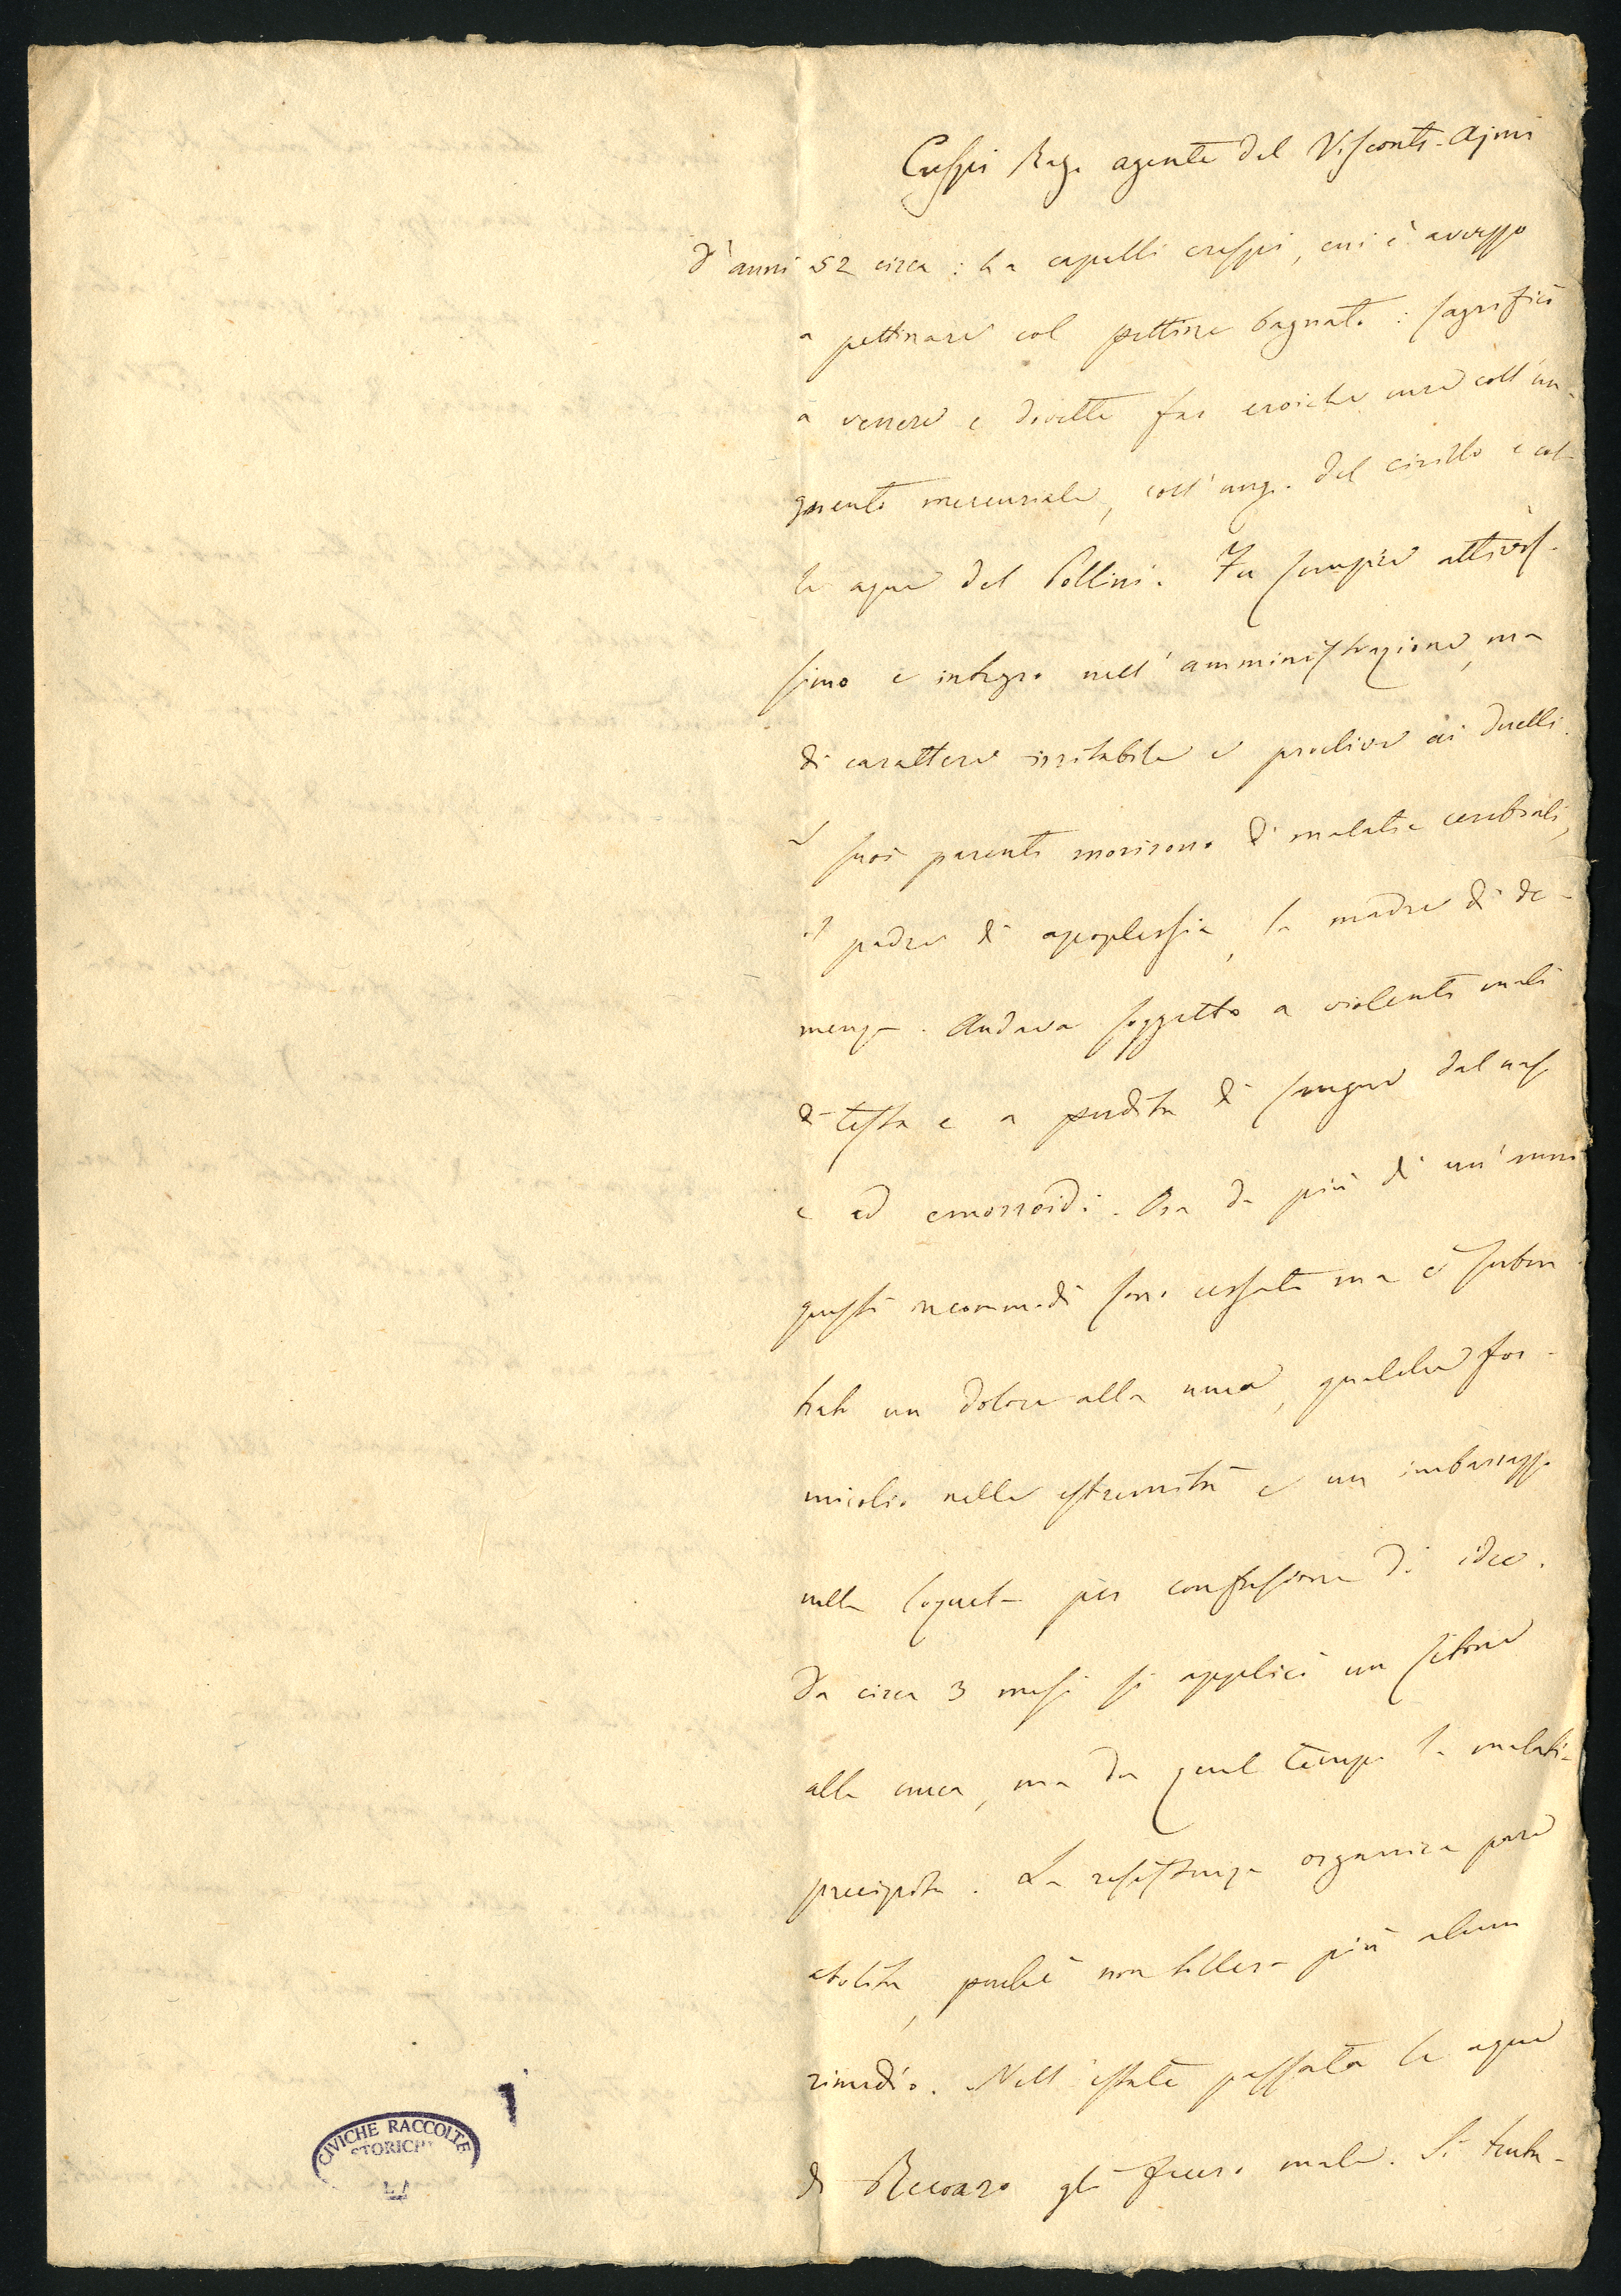 Crespi Rag. agente del Visconti-Ajmi
d'anni 52 circa : ha capelli crespi, cui è avvezzo
a pettinare col pettine bagnato : sagrificò
a venere e dovette far eroiche cure coll'un-
guento mercuriale, coll'ung. del cirillo e col-
le aque del Pollini. Fu sempre attivis-
simo e integro nell'amministrazione, ma
di carattere irritabile e proclive ai duelli.
I suoi parenti morirono di malatie cerebrali,
il padre di apoplessia, la madre di de-
menza. Andava soggetto a violenti mali
di testa e a perdita di sangue dal naso
e ad emorroidi. Ora da più di un'anno
questi incommodi sono cessati ma è suben-
trato un dolore alla nuca, qualche for-
micolio nelle estremità e un imbarazzo
nella loquela per confusione di idee.
Da circa 3 mesi si applicò un setone
alla nuca, ma da quel tempo la malatia
precipita. La resistenza organica pare
abolita, perchè non tollera più alcun
rimedio. Nell'estate passata le aque
di Recoaro gli fecero male. Si tenta-
CIVICHE RACCOLTE
STORICHE
1